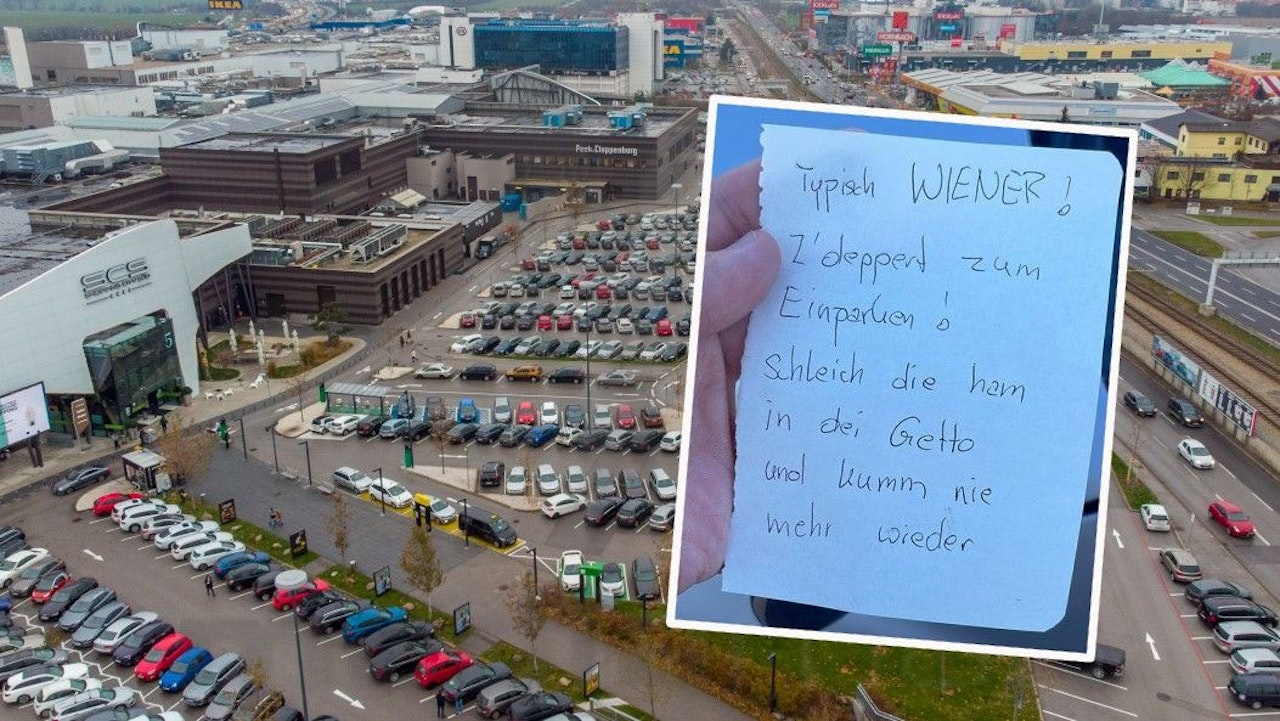 IKEA
HORNBACH
MERKUR
Peek&Cloppenburg
SCS
5
Typisch WIENER!
Z'deppert zum
Einparken!
Schleich die ham
in dei Getto
und kumm nie
mehr wieder